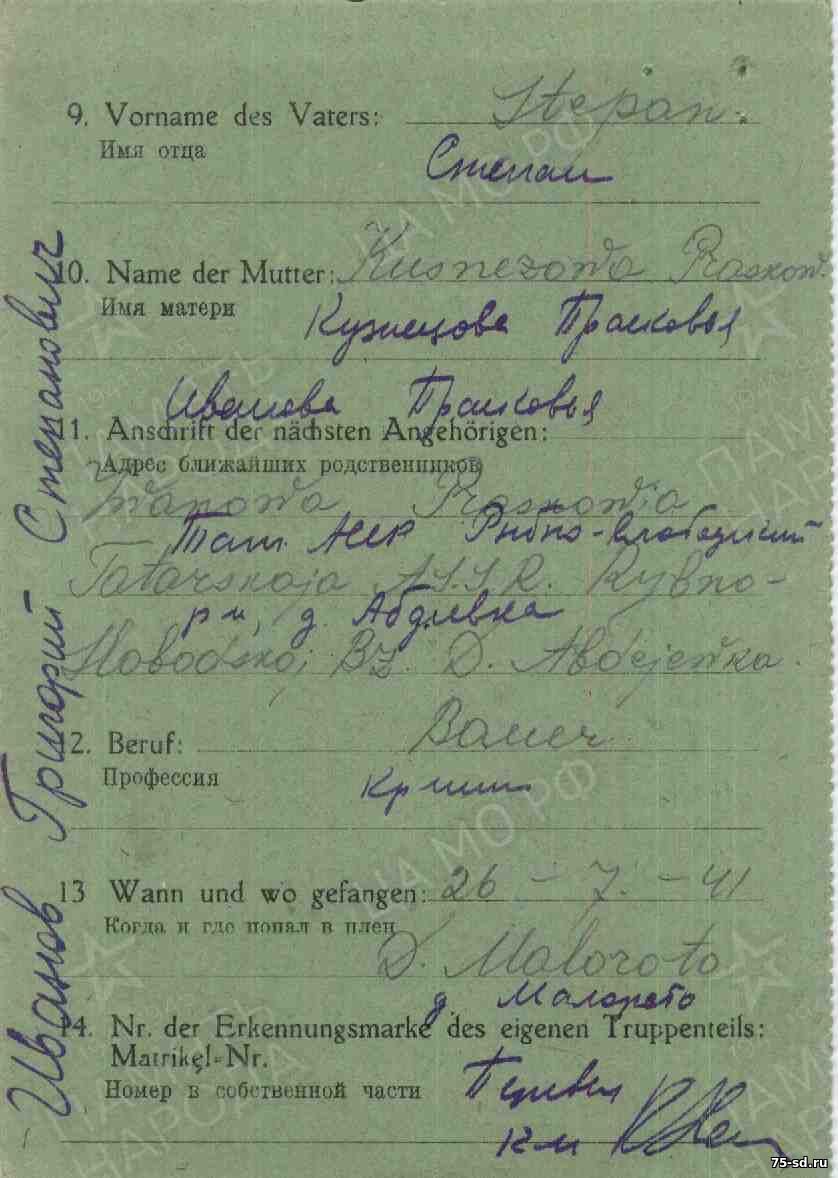 9. Vorname des Vaters: Stepan.
Имя отца
Степан
10. Name der Mutter: Kusnezowa Praskow.
Имя матери
Кузнецова Прасковья
Иванова Прасковья
11. Anschrift der nächsten Angehörigen:
Адрес ближайших родственников
Iwanowa Praskowia
Тат. АССР Рыбно-Слободский
Tatarskaja A.S.S.R. Rybno-
р-н, д. Абдеевка
Slobodskoj BZ. D. Abdejewka.
12. Beruf: Bauer
Профессия
Кр-нин
13 Wann und wo gefangen: 26 – 7. – 41
Когда и где попал в плен
D. Maloroto
д. Малорото
14. Nr. der Erkennungsmarke des eigenen Truppenteils:
Matrikel-Nr.
Номер в собственной части
Перевел
Иванов Григорий Степанович
ЦА МО РФ
ПАМЯТЬ
НАРОДА
75-sd.ru